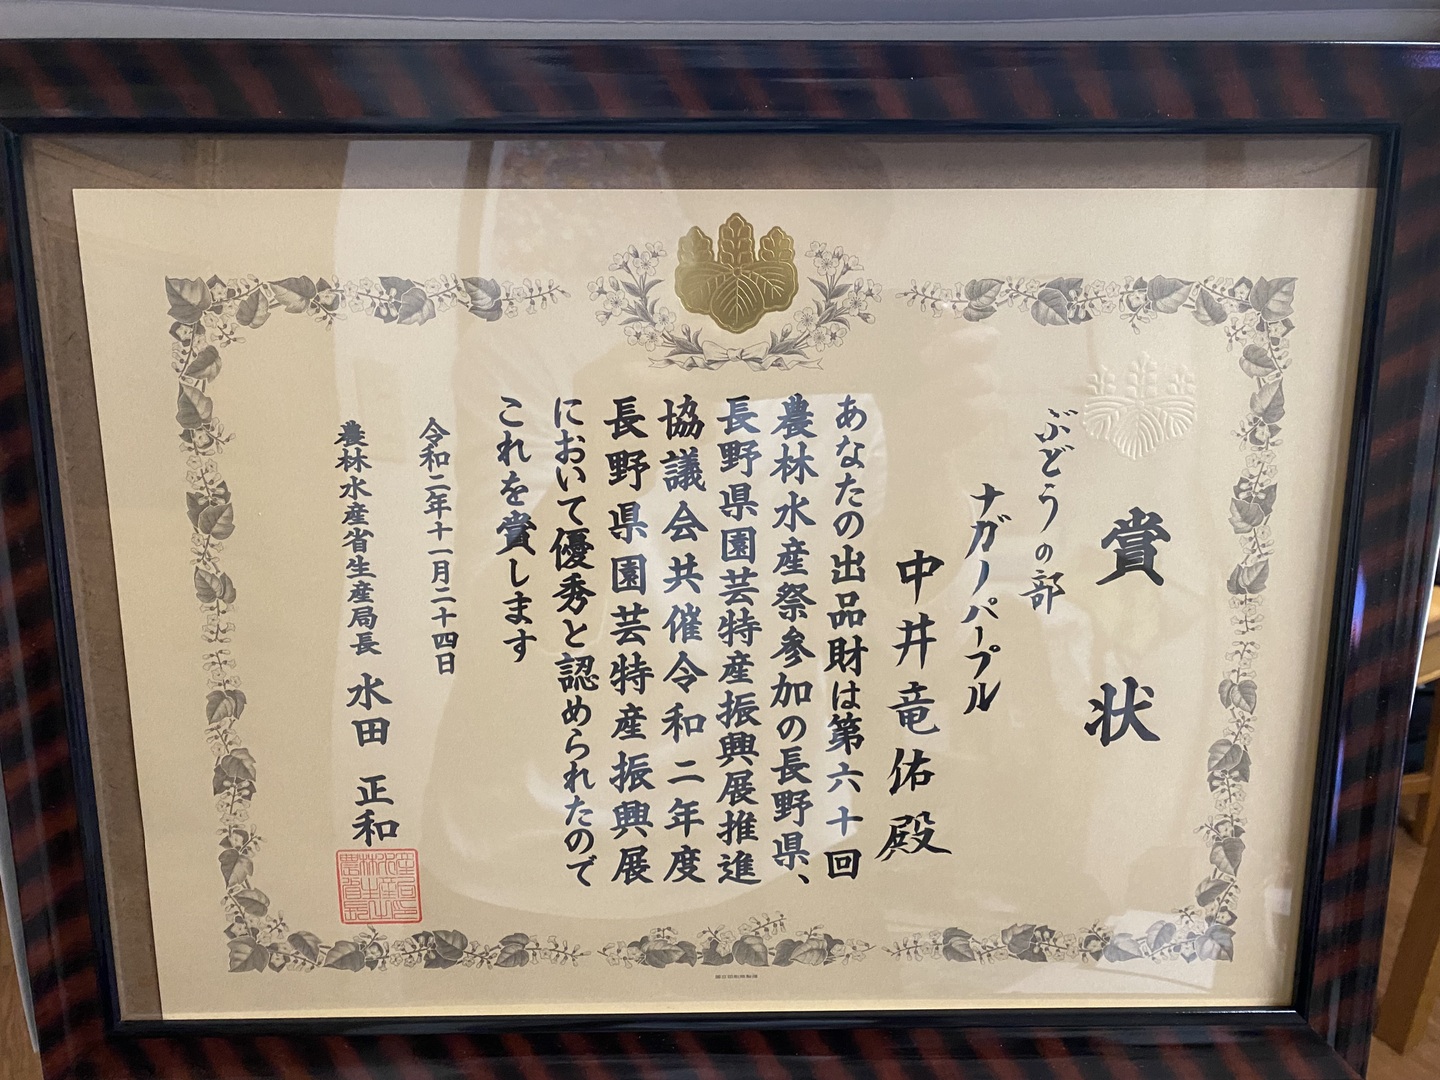 賞状
ぶどうの部
ナガノパープル
中井竜佑殿
あなたの出品財は第六十回
農林水産祭参加の長野県、
長野県園芸特産振興展推進
協議会共催令和二年度
長野県園芸特産振興展
において優秀と認められたので
これを賞します
令和二年十一月二十四日
農林水産省生産局長 水田 正和